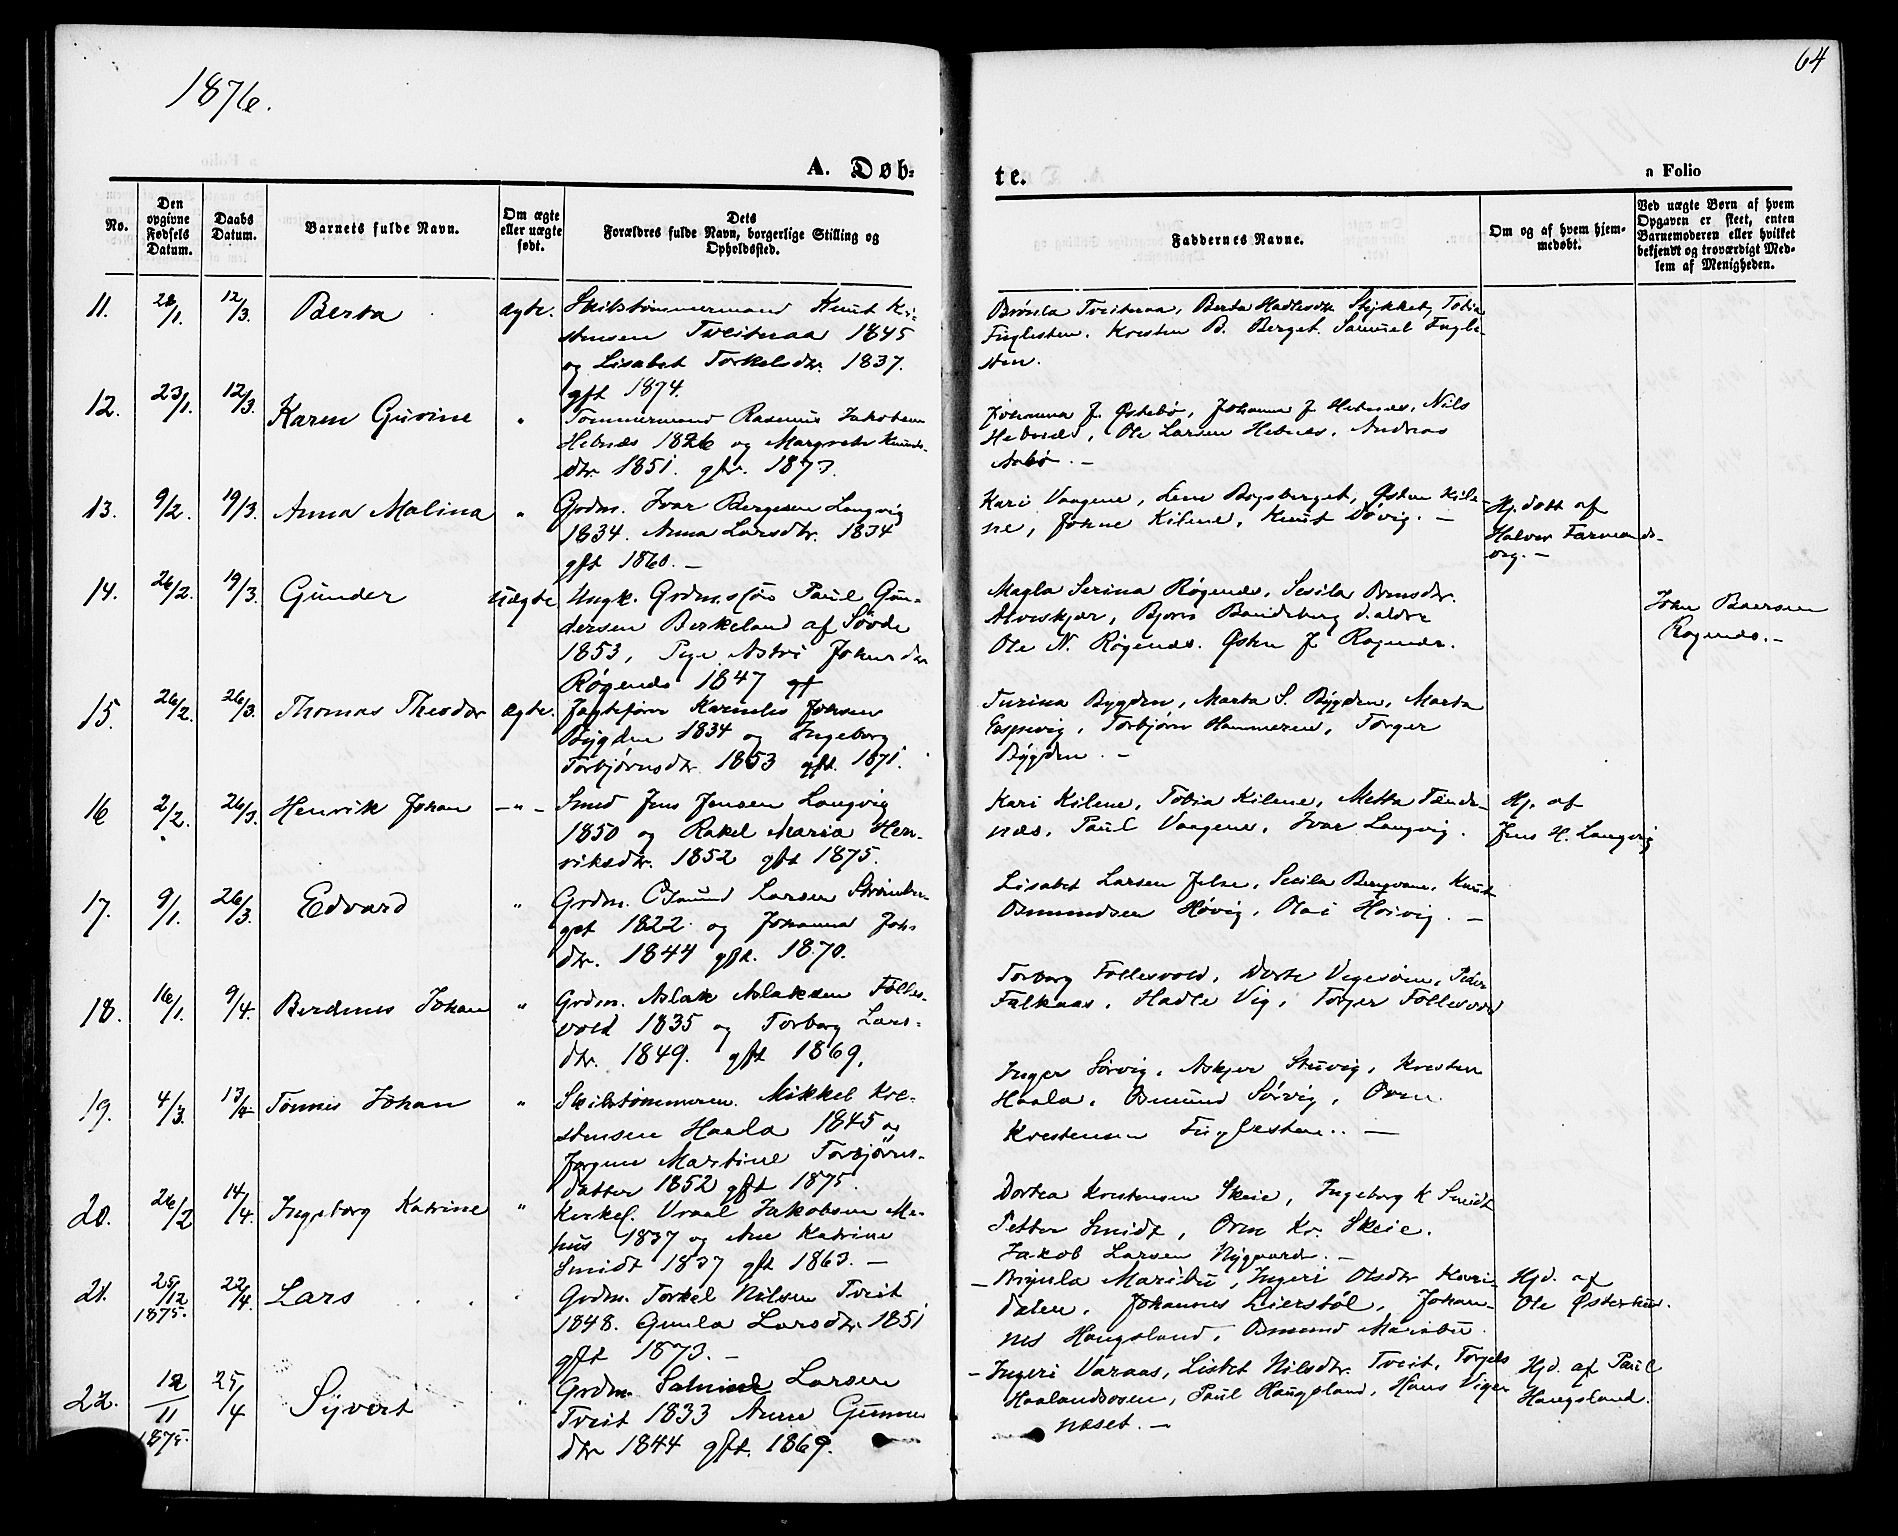 1876.
64
A. Døb-
te.
a Folio
No.
Den opgivne Fødsels Datum.
Daabs Datum.
Barnets fulde Navn.
Om ægte eller uægte født.
Dets Forældres fulde Navn, borgerlige Stilling og Opholdssted.
Faddernes Navne.
Om og af hvem hjemmedøbt.
Ved uægte Børn af hvem Opgaven er skeet, enten Barnemoderen eller hvilket bekjendt og troværdigt Medlem af Menigheden.
11. 12/3. Berta ægte. Skibstømmermand Knut Kri-
stensen Tveitnaa 1845
og Lisabet Torkelsdtr. 1837.
gft 1874.
Tveitnaa, Berta Hadlesdtr
Fuglesten. Kresten B. Berget. Samuel Fugle-
sten.
12. 23/1. 12/3. Karen Gurine „ Tømmermand Rasmus Jakobsen
Hebnæs 1826 og Margrete Knuds-
dtr. 1851. gft. 1873.
Johanna J. Østebø, Johanna J. Hebnæs, Nils
Hebnæs, Ole Larsen Hebnæs, Andreas
Aabø. —
13. 9/2. 19/3. Anna Malina „ Grdm. Ivar Bergesen Langvig
1834. Anna Larsdtr. 1834
gft 1860. —
Kari Vaagene, Lene Østen Kile-
ne, Johne Kilene, Knut Døvig. —
Hj. døbt af
Halvor Farmands-
vig. —
14. 26/2. 19/3. Gunder Uægte Ungk. Grdm. søn Paul Gun-
dersen Birkeland af Søvde
1853, Pige Astri Johnsdtr
Røgenæs 1847
Magla Serina Røgenæs, Sesila
Alveskjær, Bjørn d. ældre
Ole N. Røgenæs. Østen J Røgenæs.
John Baarsen
Røgenæs. —
15. 26/2. 26/3. Thomas Theodor ægte. Jagtefører Kornelis Johnsen
Bygden 1834 og Ingeborg
Torbjørnsdtr. 1853 gft. 1871.
Turina Bygden, Marta S. Bygden, Marta
Espevig, Torbjørn Hammeren, Torger
Bygden. —
16 2/2. 26/3. Henrik Johan — „ — Smed Jens Jensen Langvig
1850 og Rakel Maria Hen-
riksdtr. 1852 gft 1875.
Kari Kilene, Tobia Kilene, Metta Tænde-
næs, Paul Vaagene, Ivar Langvig.
Hj. af
Jens H. Langvig
17. 9/1. 26/3. Edvard „ Grdm. Osmund Larsen
1822 og Johanna Johs
dtr. 1844 gft. 1870.
Lisabet Larsen Jelse, Sesila Knut
Osmundsen Høvig, Olai Hovig. —
18. 16/1. 9/4. Berdines Johan „ Grdm. Aslak Aslaksen Folles-
vold 1835 og Torborg Lars-
dtr. 1849. gft 1869.
Torborg Follesvold, Dorte Peder
Falkaas, Hadle Vig, Torger Follesvold
19. 4/3. 13/4 Tønnes Johan „ Skibstømmerm. Mikkel Kre-
stensen Haala 1845 og
Jorgine Martine Torbjørns-
datter 1852 gft 1875.
Inger Sørvig, Askjer Stuvig, Kresten
Haala, Osmund Sørvig, Orm
Krestensen Fuglesten. —
20. 26/2 14/4. Ingeborg Katrine „ Kirkes. Vraal Jakobsen Me-
hus 1837 og Ane Katrine
Smidt 1837 gft 1863. —
Dortea Krestensen Skeie, Ingeborg K Smidt
Petter Smidt, Orm Kr. Skeie.
Jakob Larsen Nygaard. —
21. 25/12 1875. 22/4. Lars Grdm. Torkel Nilsen Tveit
1848. Gunla Larsdtr 1851
gft 1873. —
— Brynla Maribu, Ingeri Olsdtr
dalen, Johannes Leierstøl, Johan-
nes Haugsland, Osmund Maribu.
Hjd. af
Ole Østerhus.
22. 12/11 1875. 25/4 Syvert Grdm. Larsen
Tveit 1833 Anne Gunnars
dtr 1844 gft. 1869.
— Ingeri Varaas, Lisbet Nilsdtr. Tveit,
Haalandsosen, Paul Haugsland, Hans Vige-
næset. —
Hjd. af Paul
Haugsland.